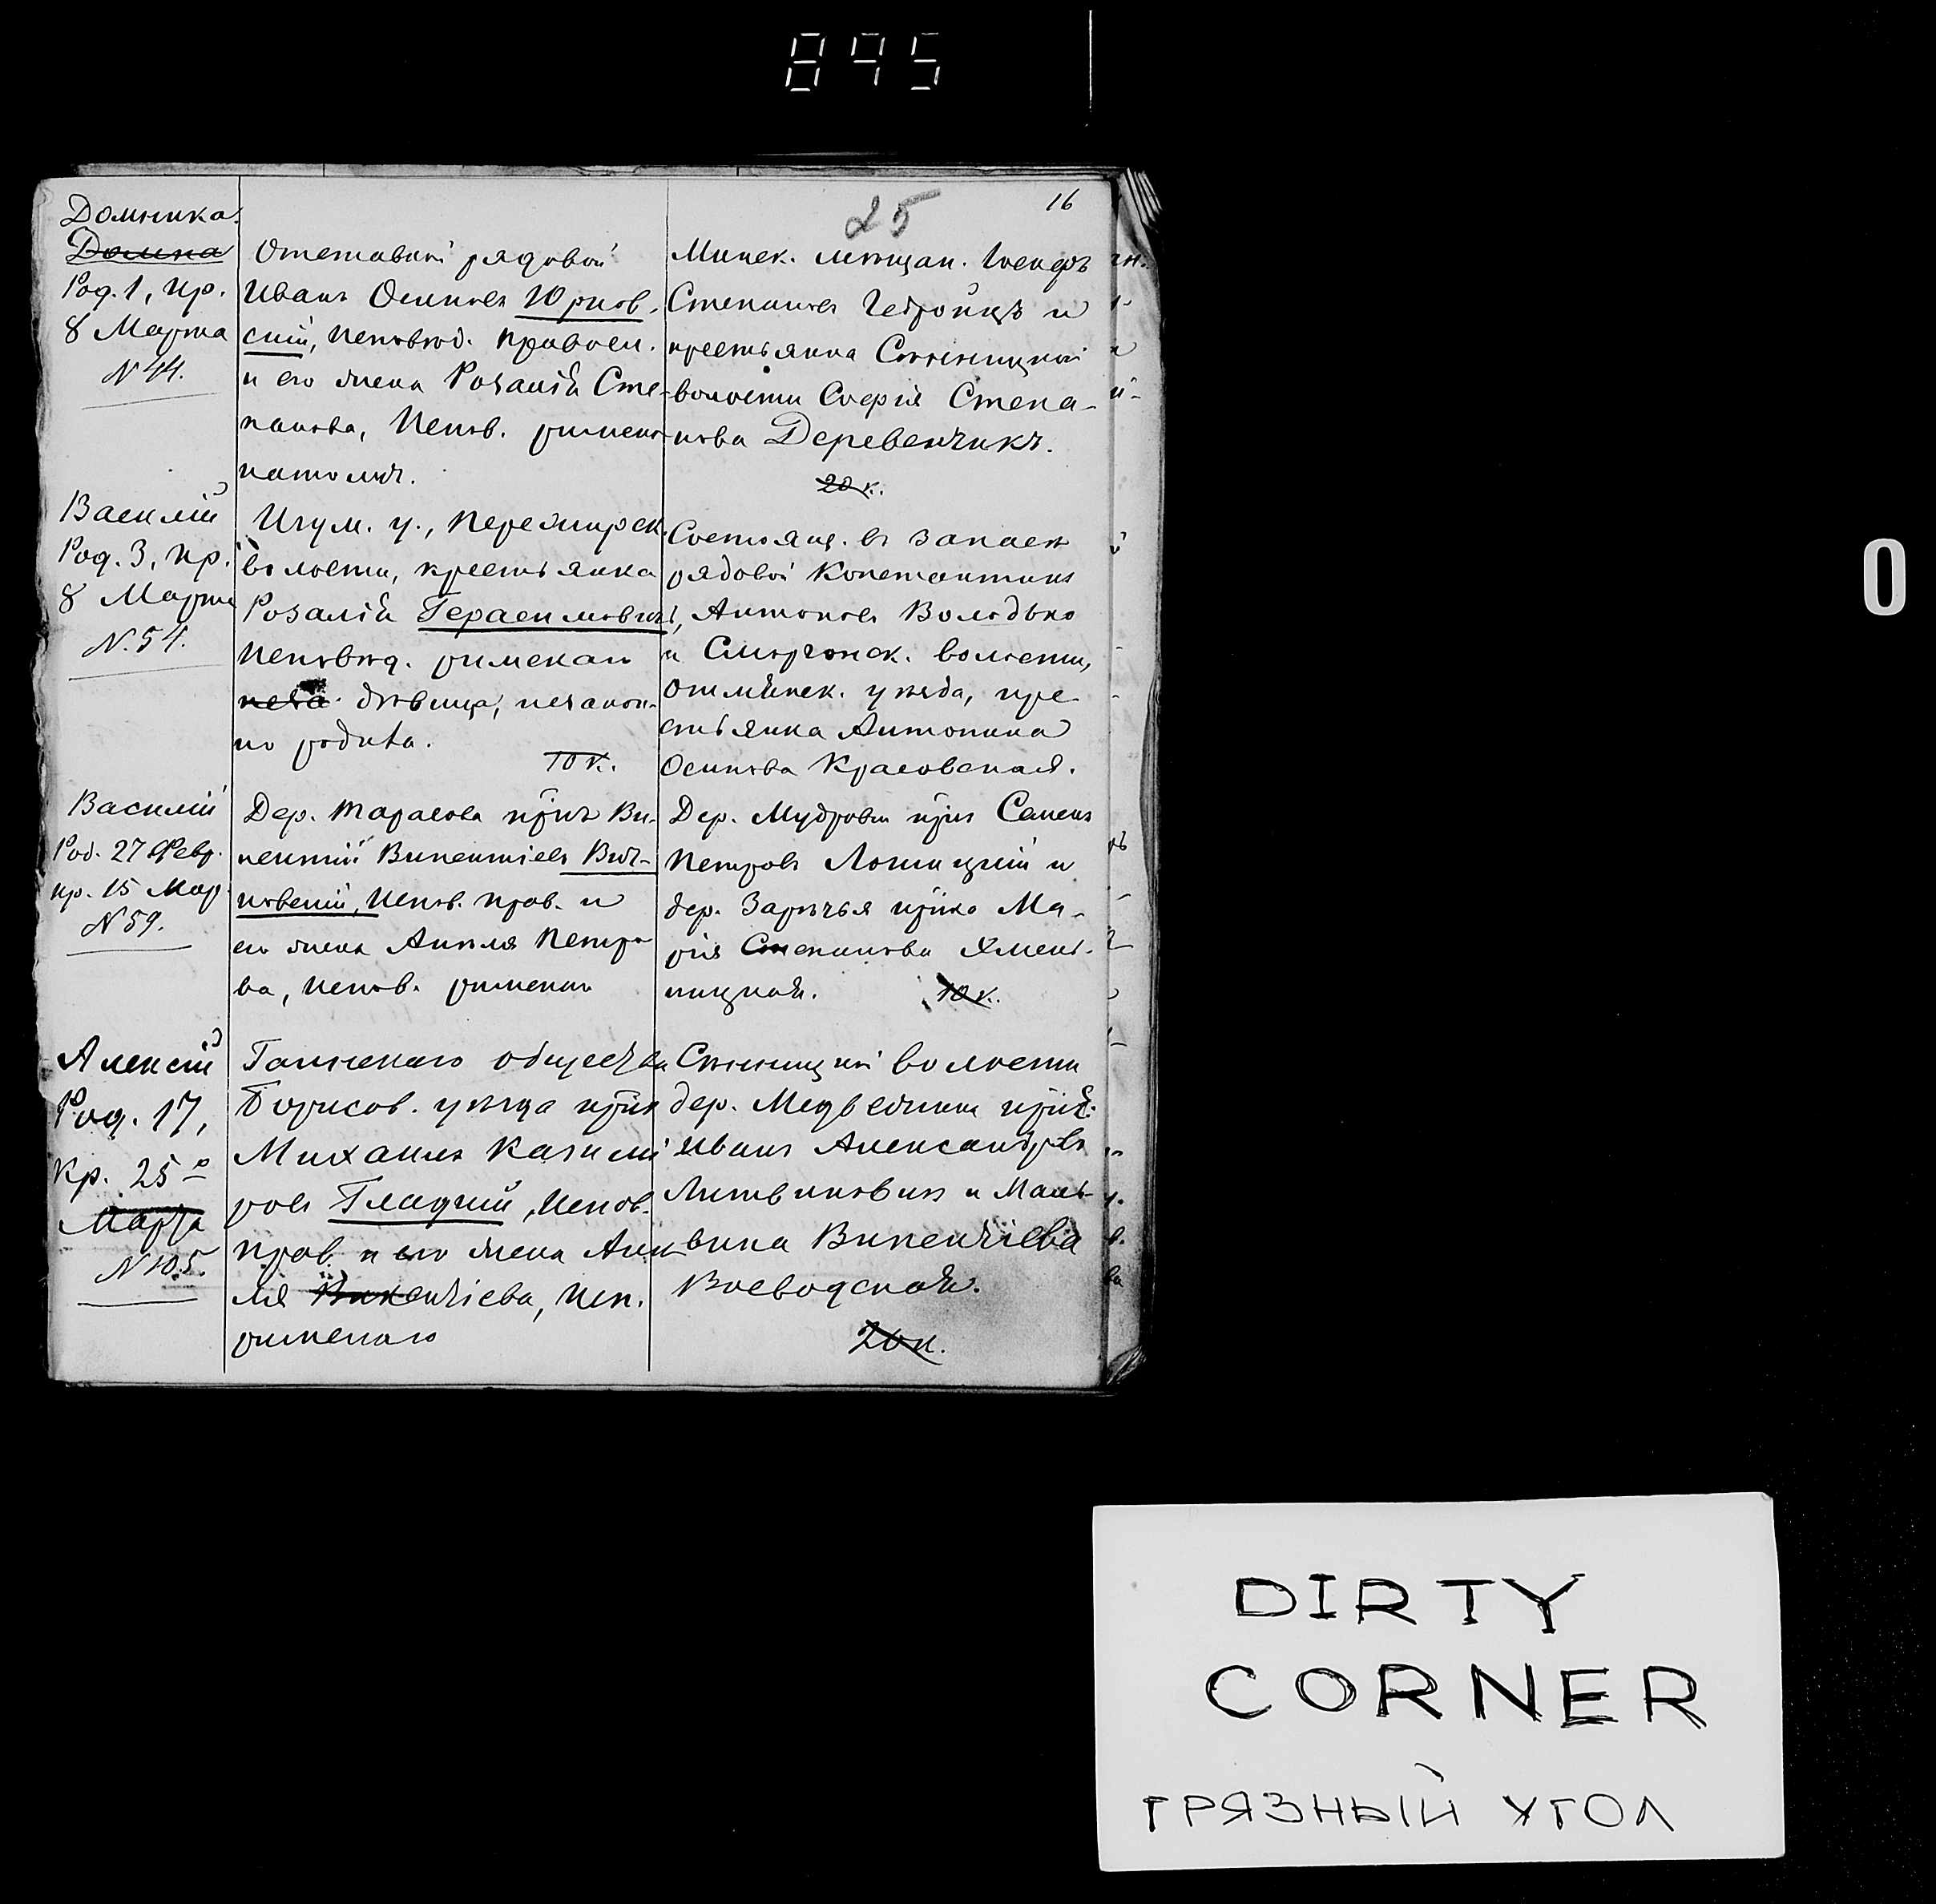 895
16
25
Домника
Домна
Род. 1, кр.
8 Марта
N 44.
Отставной рядовой
Иванъ Осиповъ Юрков-
скій, исповѣд. правосл.
и его жена Розалія Сте-
панова, испов. римско
католич.
Минск. мѣщан. Іосифъ
Степановъ Гедройцъ и
крестьянка Сѣнницкой
волости Софія Степа-
нова Деревенчикъ.
20 к.
Василій
Род. 3, кр.
8 Марта
N. 54.
Игум. у., Пережирск.
волости, крестьянка
Розалія Герасимовичъ,
исповѣд. римскаго
дѣвица, незакон-
но родила.
10 к.
Состоящ. въ запасѣ
рядовой Константинъ
Антоновъ Володько
и Сморгонск. волости,
Ошмянск. уѣзда, кре-
стьянка Антонина
Осипова Красовская.
Василій
Род. 27 Февр.
кр. 15 Мар.
N 59.
Дер. Тарасова кр-нъ Ви-
кентій Викентіевъ Вит-
ковскій, испов. прав. и
его жена Анеля Петро-
ва, испов. римскаго
Дер. Мудровки кр-нъ Семенъ
Петровъ Лошицкій и
дер. Зарѣчья кр-ка Ма-
рія Степанова Хмель-
ницкая.
10 к.
Алексій
Род. 17,
Кр. 25
Марта
N 105.
Гаинскаго общества
Борисов. уѣзда кр-нъ
Михаилъ Казими-
ровъ Гладкій, испов.
прав. и его жена Ане-
ля Викентіева, исп.
римскаго
Сѣнницкой волости
дер. Медвежина кр-нъ
Иванъ Александровъ
Литвиновичъ и Маль-
вина Викентіева
Воеводская.
20 к.
0
DIRTY
CORNER
ГРЯЗНЫЙ УГОЛ